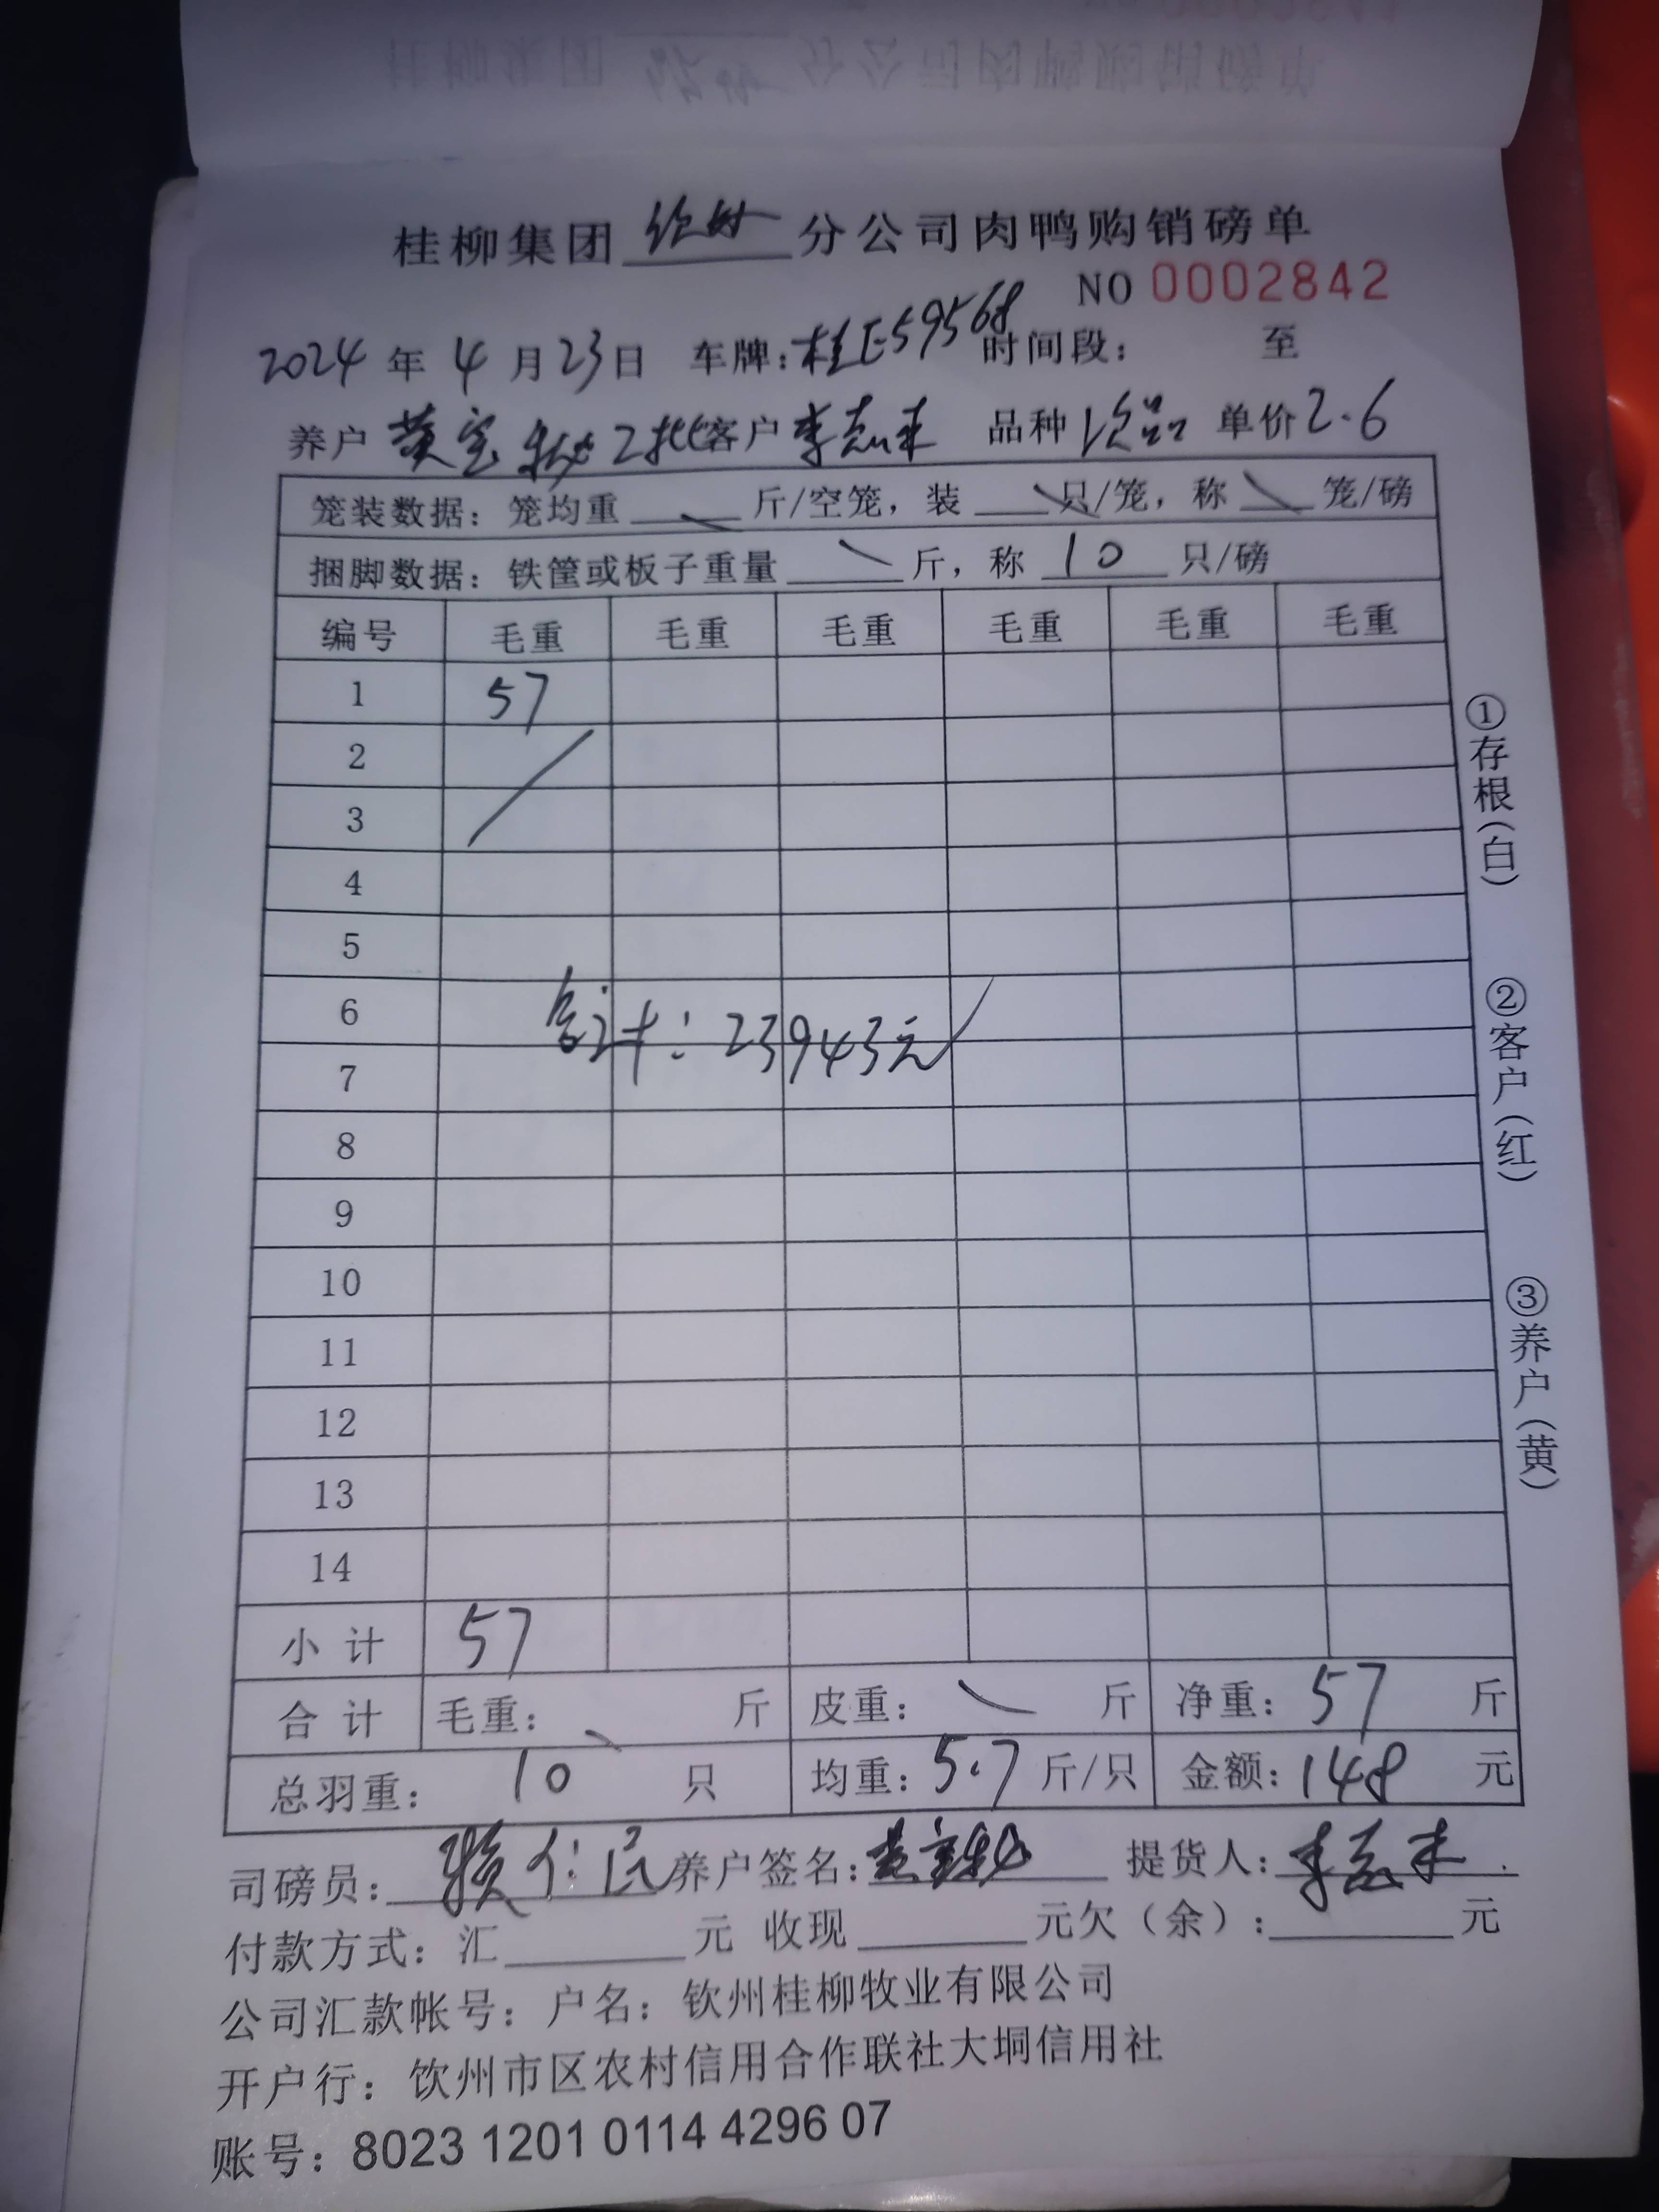 桂柳集团 钦州 分公司肉鸭购销磅单
NO 0002842
2024 年 4 月 23 日 车牌：桂E59568 时间段： 至
养户 黄宝 2批 客户 李志来 品种 次品 单价 2.6
笼装数据：笼均重 斤/空笼，装 只/笼，称 笼/磅
捆脚数据：铁筐或板子重量 斤，称 10 只/磅
编号 毛重 毛重 毛重 毛重 毛重 毛重
1 57
2
3
4
5
6
合计：23943元
7
8
9
10
11
12
13
14
小计 57
合计 毛重： 斤 皮重： 斤 净重：57 斤
总羽重： 10 只 均重：5.7 斤/只 金额：148 元
司磅员：赖仁民 养户签名：黄宝 提货人：李志来
付款方式：汇 元 收现 元欠（余）： 元
公司汇款帐号：户名：钦州桂柳牧业有限公司
开户行：钦州市区农村信用合作联社大垌信用社
账号：8023 1201 0114 4296 07
①存根（白）
②客户（红）
③养户（黄）